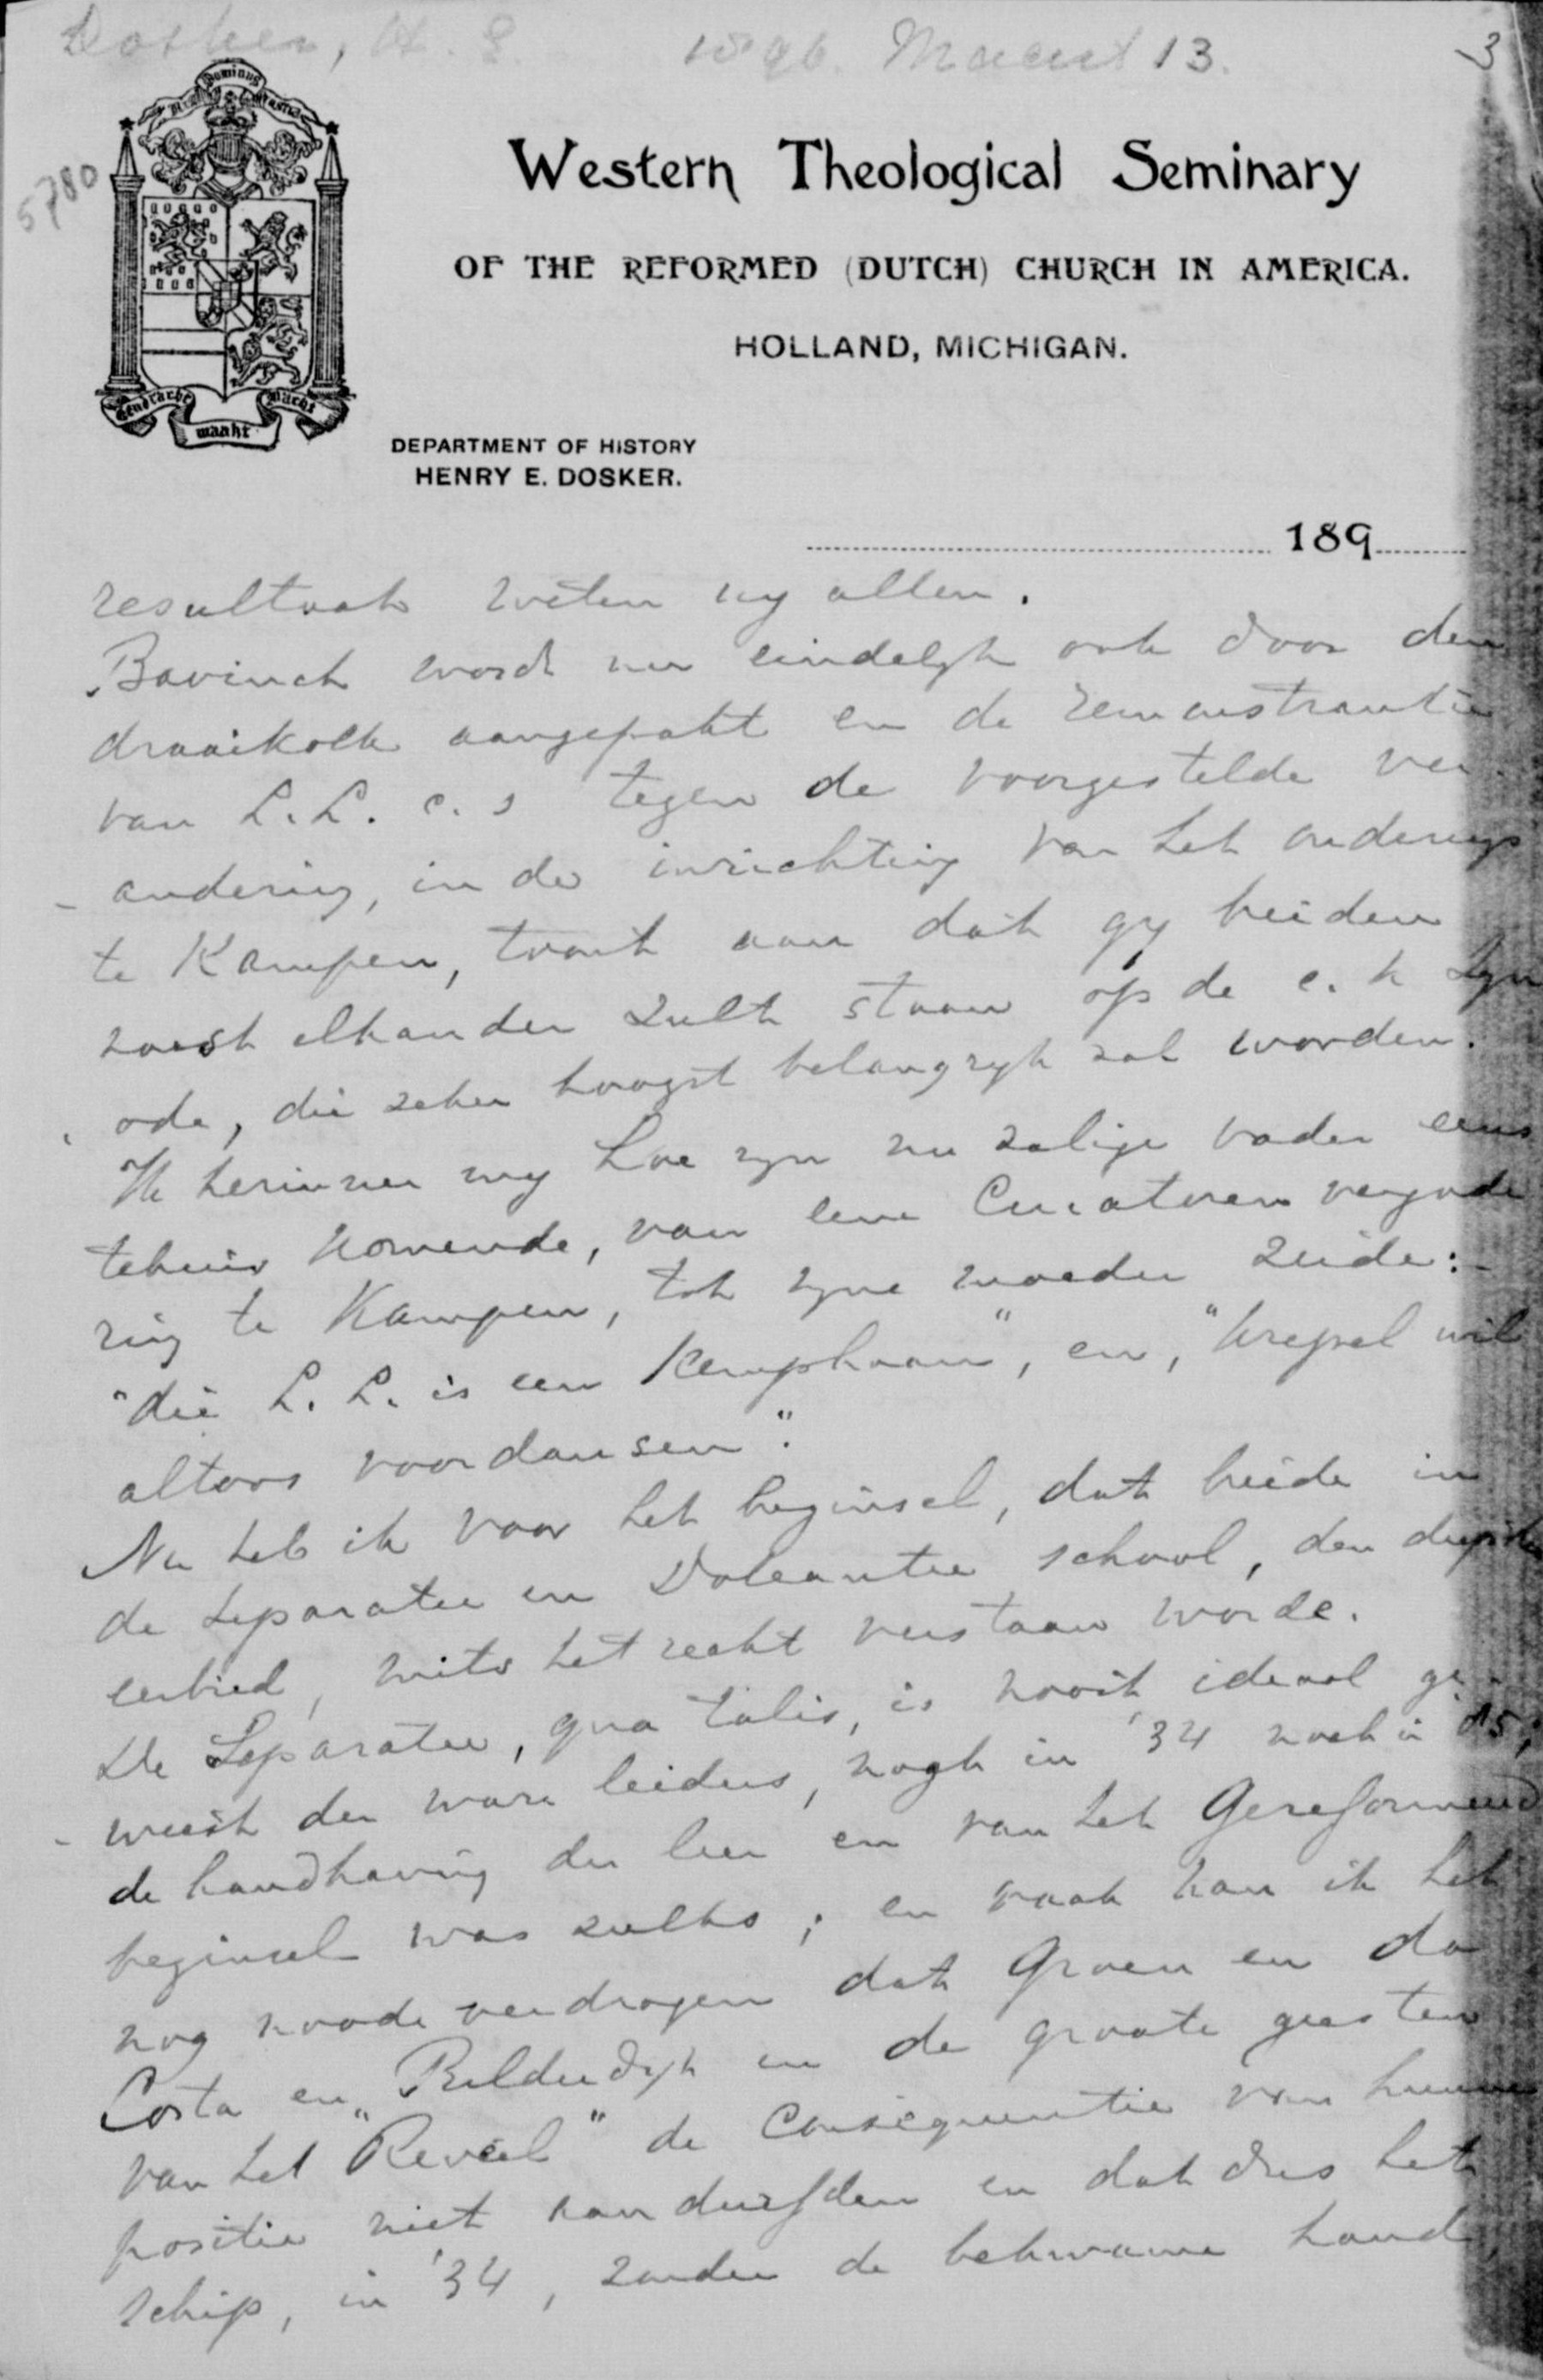 Dosker, H. E. 1896. Maart 13. 3
5780
Dominus
Eendracht maakt macht
Western Theological Seminary
OF THE REFORMED (DUTCH) CHURCH IN AMERICA.
HOLLAND, MICHIGAN.
DEPARTMENT OF HISTORY
HENRY E. DOSKER.
189
resultaat weten wy allen.
Bavinck wordt nu eindelyk ook door den
draaikolk aangepakt en de remonstrantie
van L. L. c. s tegen de voorgestelde ver
- andering, in de inrichting van het onderwys
te Kampen, toont aan dat gy beiden
naast elkander zult staan op de e. k Syn
- ode, die zeker hoogst belangryk zal worden.
Ik herinner my hoe myn nu zalige vader eens
tehuis komende, van eene Curatoren vergade
ring te Kampen, tot myne moeder zeide:-
"die L. L. is een Kemphaan", en, "Krepel wil
altoos voordansen".
Nu heb ik voor het beginsel, dat beide in
de Separatie en Doleantie school, den diepsten
eerbied, mits het recht verstaan worde.
De Separatie, qua talis, is nooit ideaal ge
- weest der ware leiders, nogh in '34 noch in 85;
de handhaving der leer en van het Gereformeerd
beginsel was zulks; en vaak kan ik het
nog noode verdragen dat Groen en da
Costa en Bilderdyk en de groote geesten
van het "Reveil" de Consequentie van hunne
positie niet aandurfden en dat dus het
schip, in '34, zonder de bekwame hand